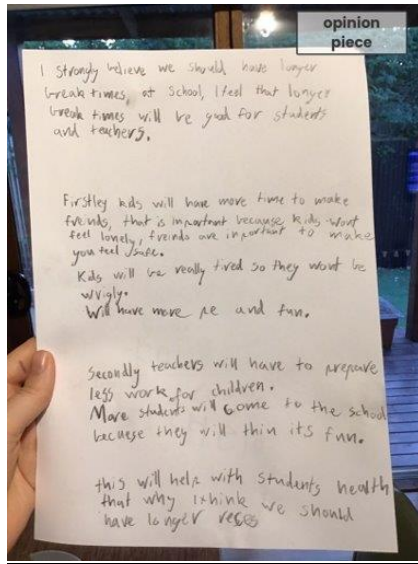 opinion
piece
I strongly believe we should have longer
break times, at school, I feel that longer
break times will be good for students
and teachers.
Firstley kids will have more time to make
freinds, that is important because kids wont
feel lonely, freinds are important to make
you feel safe.
Kids will be really tired so they wont be
wrigly.
Will have more pe and fun.
Secondly teachers will have to prepare
less work for children.
More students will come to the school
because they will thin its fun.
this will help with students health
that why I think we should
have longer reces